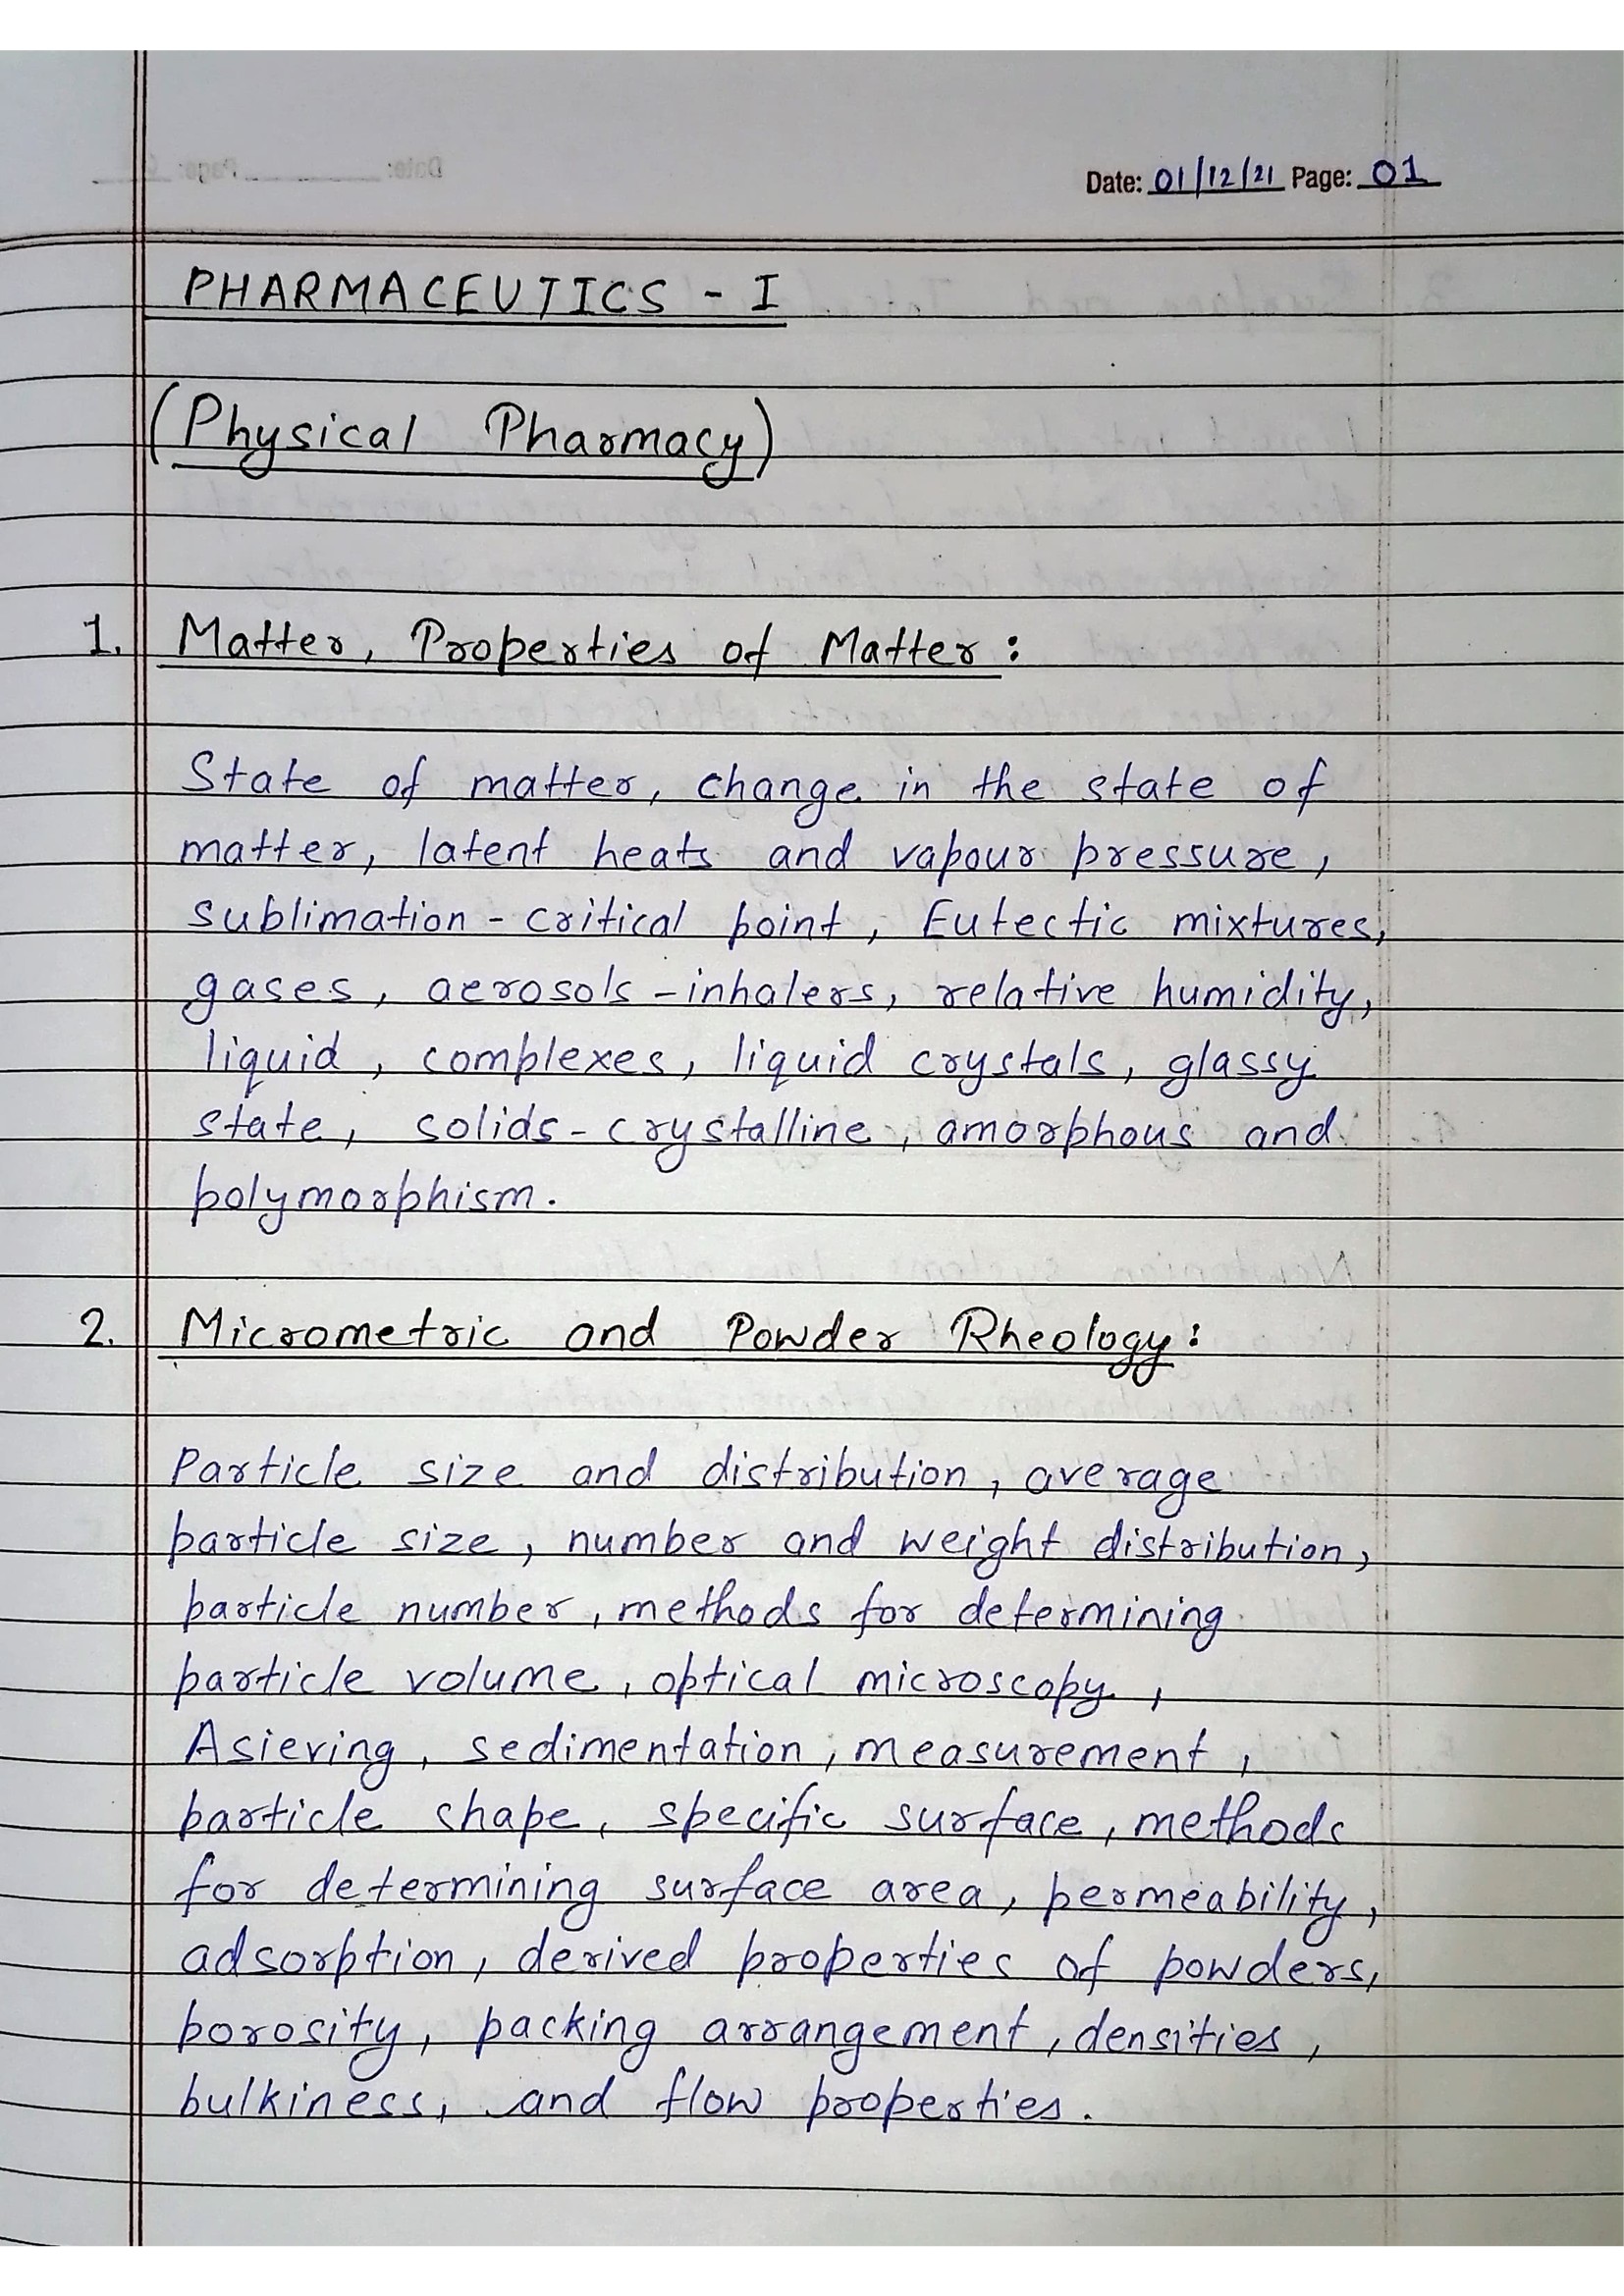 Date: 01/12/21 Page: 01
PHARMACEUTICS - I
(Physical Pharmacy)
1. Matter, Properties of Matter :
State of matter, change in the state of
matter, latent heats and vapour pressure,
sublimation - critical point, Eutectic mixtures,
gases, aerosols - inhalers, relative humidity,
liquid, complexes, liquid crystals, glassy
state, solids - crystalline, amorphous and
polymorphism.
2. Micrometric and Powder Rheology :
Particle size and distribution, average
particle size, number and weight distribution,
particle number, methods for determining
particle volume, optical microscopy,
Asieving, sedimentation, measurement,
particle shape, specific surface, methods
for determining surface area, permeability,
adsorption, derived properties of powders,
porosity, packing arrangement, densities,
bulkiness, and flow properties.